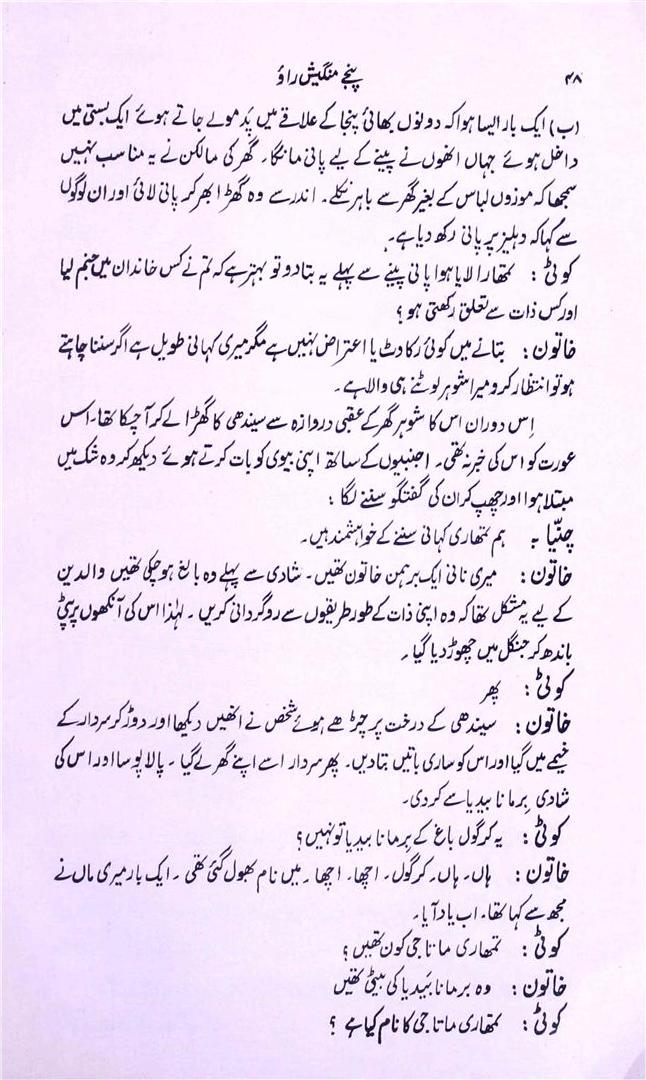 ۴۸
پنجے منگیش راؤ
(ب) ایک بار ایسا ہوا کہ دونوں بھائی پنجا کے علاقے میں پڈمولے جاتے ہوئے ایک بستی میں
داخل ہوئے جہاں انھوں نے پینے کے لیے پانی مانگا۔ گھر کی مالکن نے یہ مناسب نہیں
سمجھا کہ موزوں لباس کے بغیر گھر سے باہر نکلے۔ اندر سے وہ گھڑا بھر کر پانی لائی اور ان لوگوں
سے کہا کہ دہلیز پر پانی رکھ دیا ہے۔
کوٹی : تمھارا لایا ہوا پانی پینے سے پہلے یہ بتا دو تو بہتر ہے کہ تم نے کس خاندان میں جنم لیا
اور کس ذات سے تعلق رکھتی ہو ؟
خاتون : بتانے میں کوئی رکاوٹ یا اعتراض نہیں ہے مگر میری کہانی طویل ہے اگر سننا چاہتے
ہو تو انتظار کرو میرا شوہر لوٹنے ہی والا ہے۔
اِس دوران اس کا شوہر گھر کے عقبی دروازہ سے سیندھی کا گھڑا لے کر آ چکا تھا۔ اس
عورت کو اس کی خبر نہ تھی۔ اجنبیوں کے ساتھ اپنی بیوی کو بات کرتے ہوئے دیکھ کر وہ شک میں
مبتلا ہوا اور چھپ کر ان کی گفتگو سننے لگا :
چنّیا ۔ ہم تمھاری کہانی سننے کے خواہشمند ہیں۔
خاتون : میری نانی ایک برہمن خاتون تھیں۔ شادی سے پہلے وہ بالغ ہو چکی تھیں والدین
کے لیے یہ مشکل تھا کہ وہ اپنی ذات کے طور طریقوں سے روگردانی کریں۔ لہٰذا اس کی آنکھوں پر پٹی
باندھ کر جنگل میں چھوڑ دیا گیا۔
کوٹی : پھر
خاتون : سیندھی کے درخت پر چڑھے ہوئے شخص نے انھیں دیکھا اور دوڑ کر سردار کے
خیمے میں گیا اور اس کو ساری باتیں بتا دیں۔ پھر سردار اسے اپنے گھر لے گیا۔ پالا پوسا اور اس کی
شادی بِرمانا بیدیا سے کر دی۔
کوٹی : یہ کرگول باغ کے بِرمانا بیدیا تو نہیں؟
خاتون : ہاں۔ ہاں۔ کرگول۔ اچھا۔ اچھا۔ میں نام بھول گئی تھی۔ ایک بار میری ماں نے
مجھ سے کہا تھا۔ اب یاد آیا۔
کوٹی : تمھاری ماتا جی کون تھیں ؟
خاتون : وہ برمانا بَیدیا کی بیٹی تھیں
کوٹی : تمھاری ماتا جی کا نام کیا ہے ؟